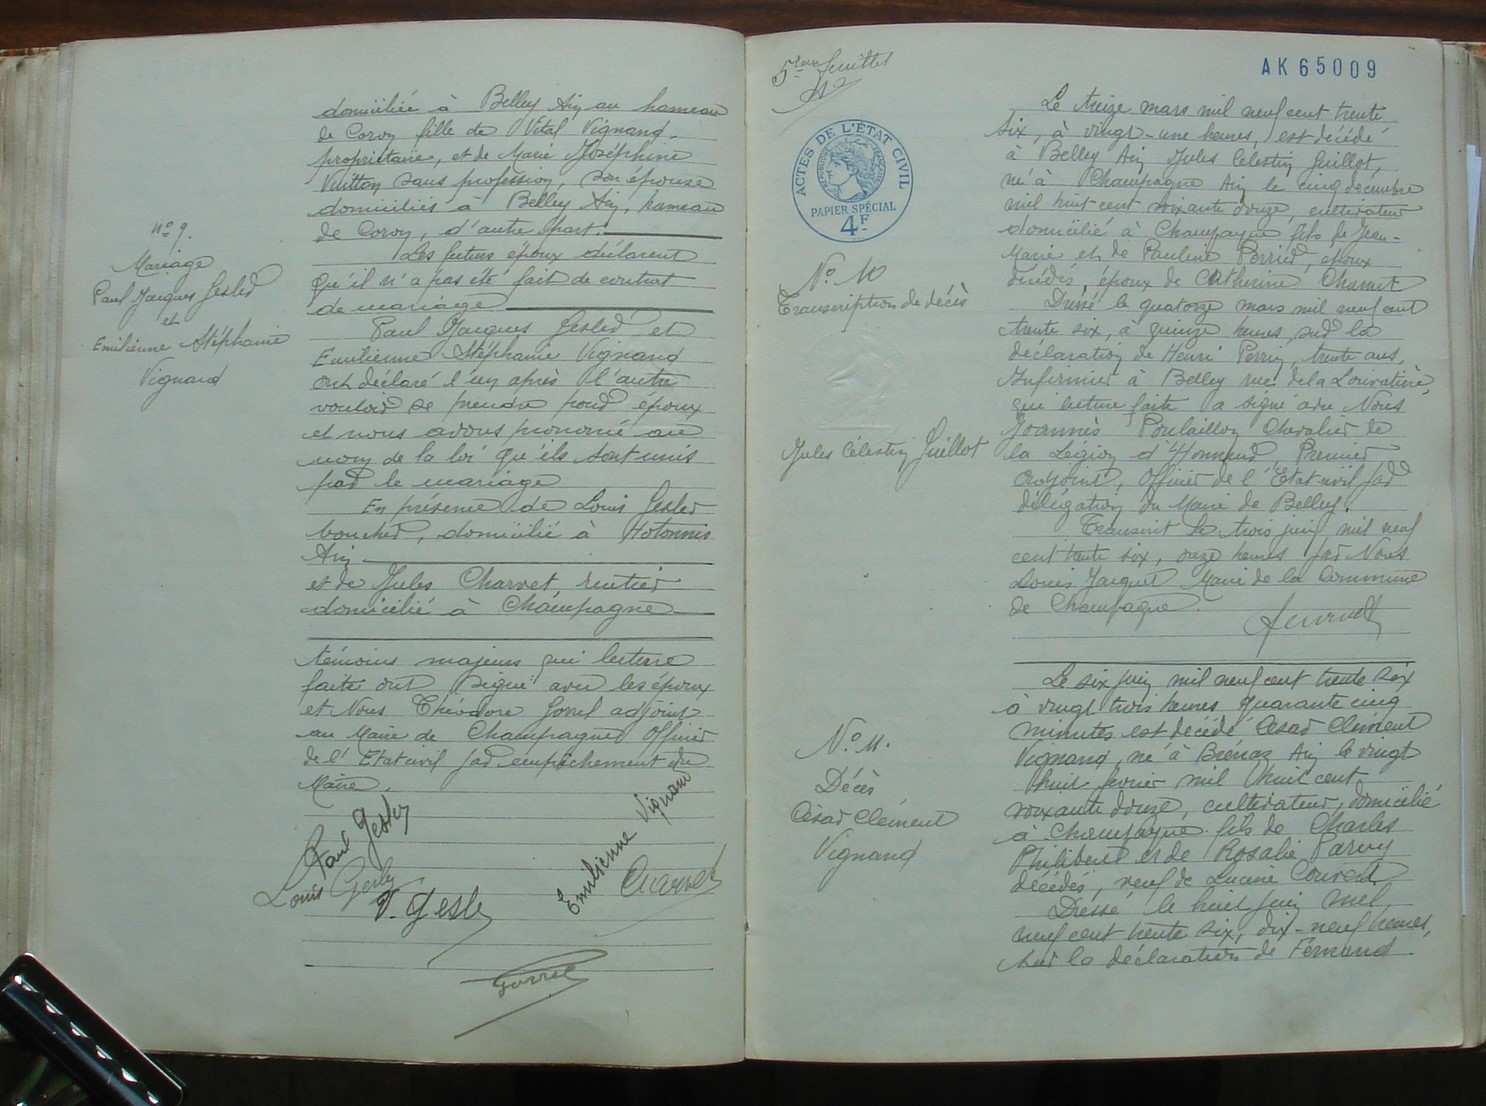 domiciliée à Belley Ain au hameau
de Coron fille de Vital Vignand
propriétaire, et de Marie Joséphine
Vuitton sans profession, son épouse
domiciliés à Belley Ain, hameau
de Coron, d'autre part.
Les futurs époux déclarent
qu'il n'a pas été fait de contrat
de mariage
Paul Jacques Gesler et
Emilienne Stéphanie Vignand
ont déclaré l'un après l'autre
vouloir se prendre pour époux
et nous avons prononcé au
nom de la loi qu'ils sont unis
par le mariage
En présence de Louis Gesler
boucher, domicilié à Hotonnes
Ain
et de Jules Charvet, rentier
domicilié à Champagne
témoins majeurs qui lecture
faite ont signé avec les époux
et Nous Théodore adjoint
au Maire de Champagne Officier
de l'Etat civil par empêchement du
Maire.
No 9.
Mariage
Paul Jacques Gesler
et
Emilienne Stéphanie
Vignand
Paul Gesler
Louis Gesler
V. Gesler
Emilienne Vignand
Charvet
5ème feuillet
AK 65009
ACTES DE L'ÉTAT CIVIL
RÉPUBLIQUE FRANÇAISE
PAPIER SPÉCIAL
4F
No 10
Transcription de décès
Jules Célestin Guillot
Le treize mars mil neuf cent trente
six, à vingt-une heures, est décédé
à Belley Ain Jules Célestin Guillot,
né à Champagne Ain le cinq décembre
mil huit cent soixante douze, cultivateur
domicilié à Champagne fils de Jean-
Marie et de Pauline Perrier, époux
décédés époux de Cathérine Charvet
Dressé le quatorze mars mil neuf cent
trente six, à quinze heures, sur la
déclaration de Henri Perrin, trente ans,
Infirmier à Belley rue de la Louvatière,
qui lecture faite a signé avec Nous
Joannès Poulaillon Chevalier de
la Légion d'Honneur Premier
adjoint, Officier de l'Etat-civil par
délégation du Maire de Belley.
Transcrit le trois juin mil neuf
cent trente six, onze heures par Nous
Louis Jacquet Maire de la Commune
de Champagne
No 11.
Décès
César Clément
Vignand
Le six juin mil neuf cent trente six
à vingt trois heures quarante cinq
minutes est décédé César Clément
Vignand né à Brénaz Ain le vingt
huit février mil huit cent
soixante douze, cultivateur, domicilié
à Champagne fils de Charles
Philibert et de Rosalie Parvy
décédés, veuf de Lucine Couvent
Dressé le huit juin mil
neuf cent trente six, dix-neuf heures,
sur la déclaration de Fernand